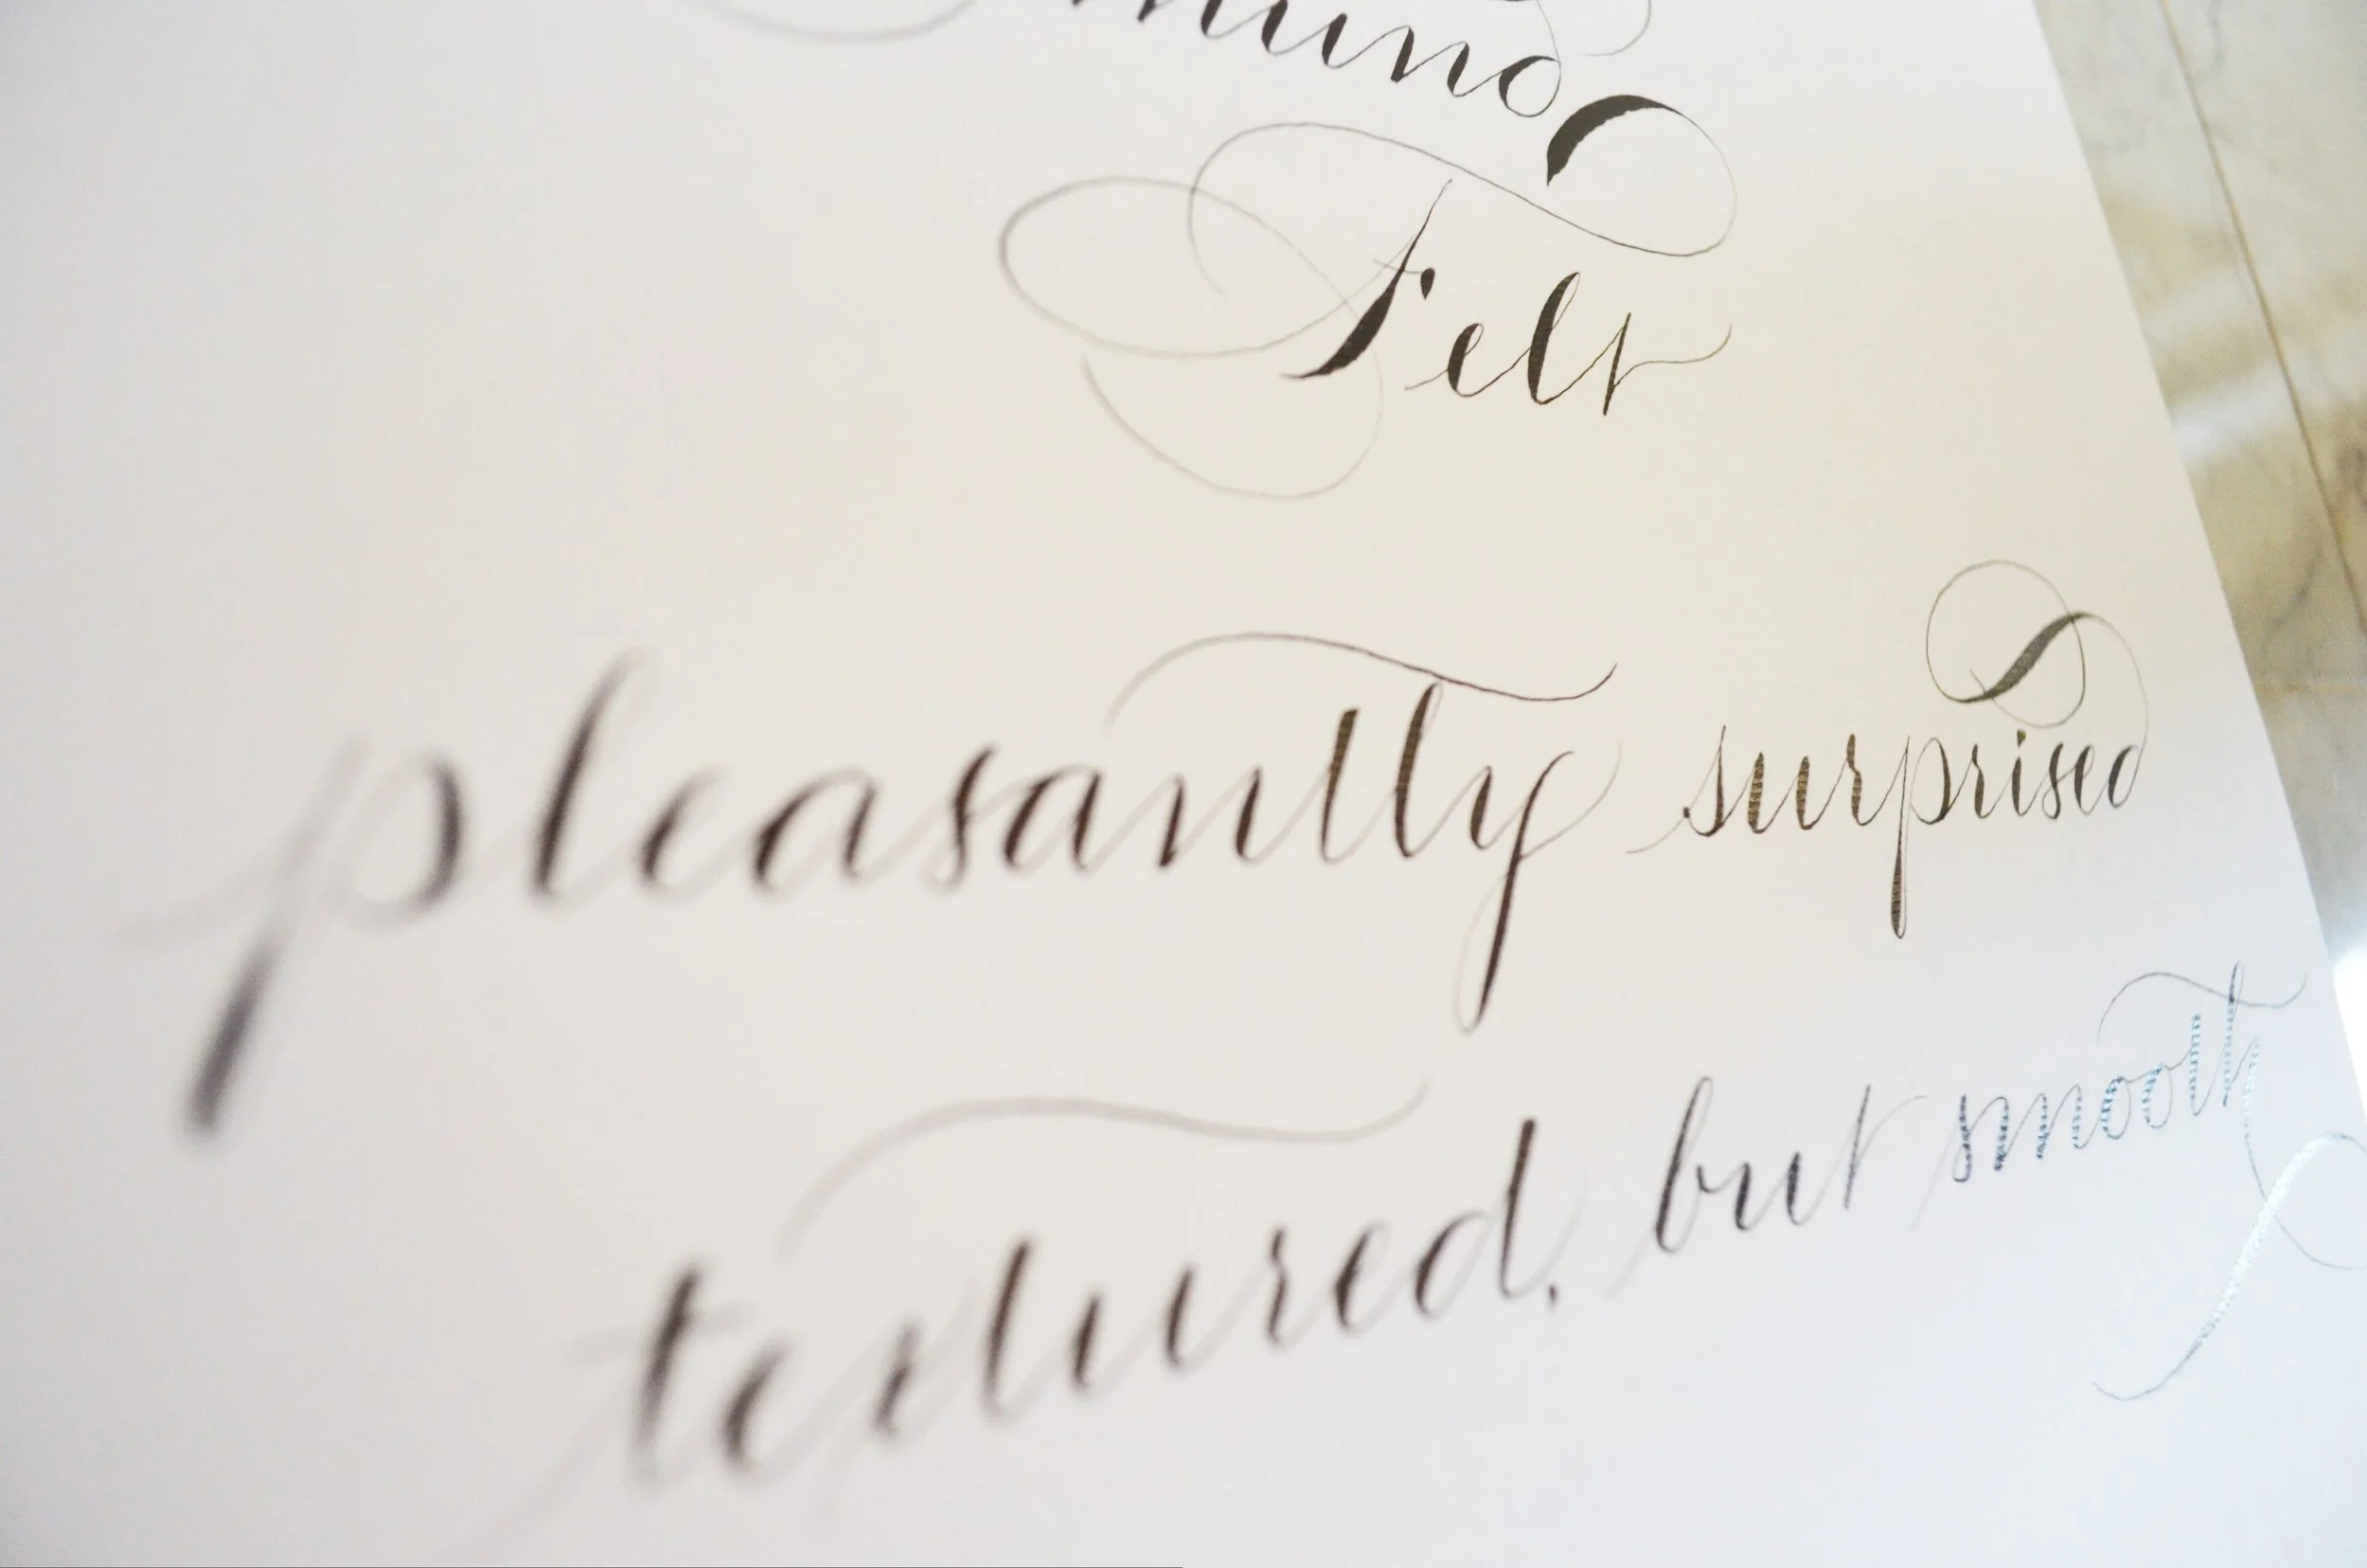 Felt
pleasantly surprised
textured, but smooth